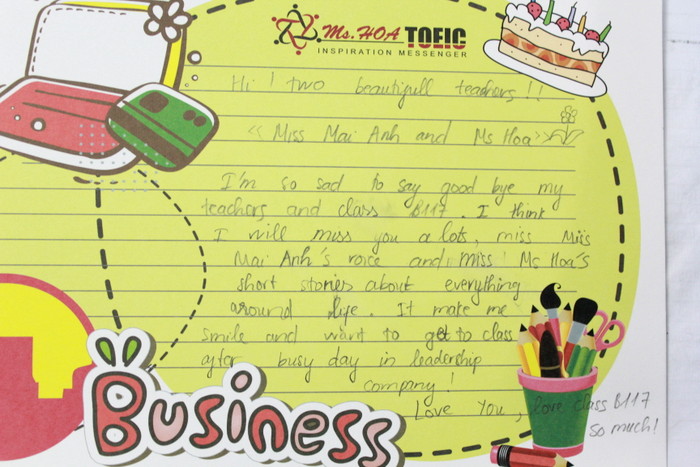 Ms. HOA TOEIC
INSPIRATION MESSENGER
Hi! two beautifull teachers!!
<< Miss Mai Anh and Ms Hoa >>
I'm so sad to say good bye my
teachers and class B117. I think
I will miss you a lots, miss Miss
Mai Anh's voice and miss Ms Hoa's
short stories about everything
around life. It make me
smile and want to get to class
after busy day in leadership
company!
Love You, love class B117
so much!
Business